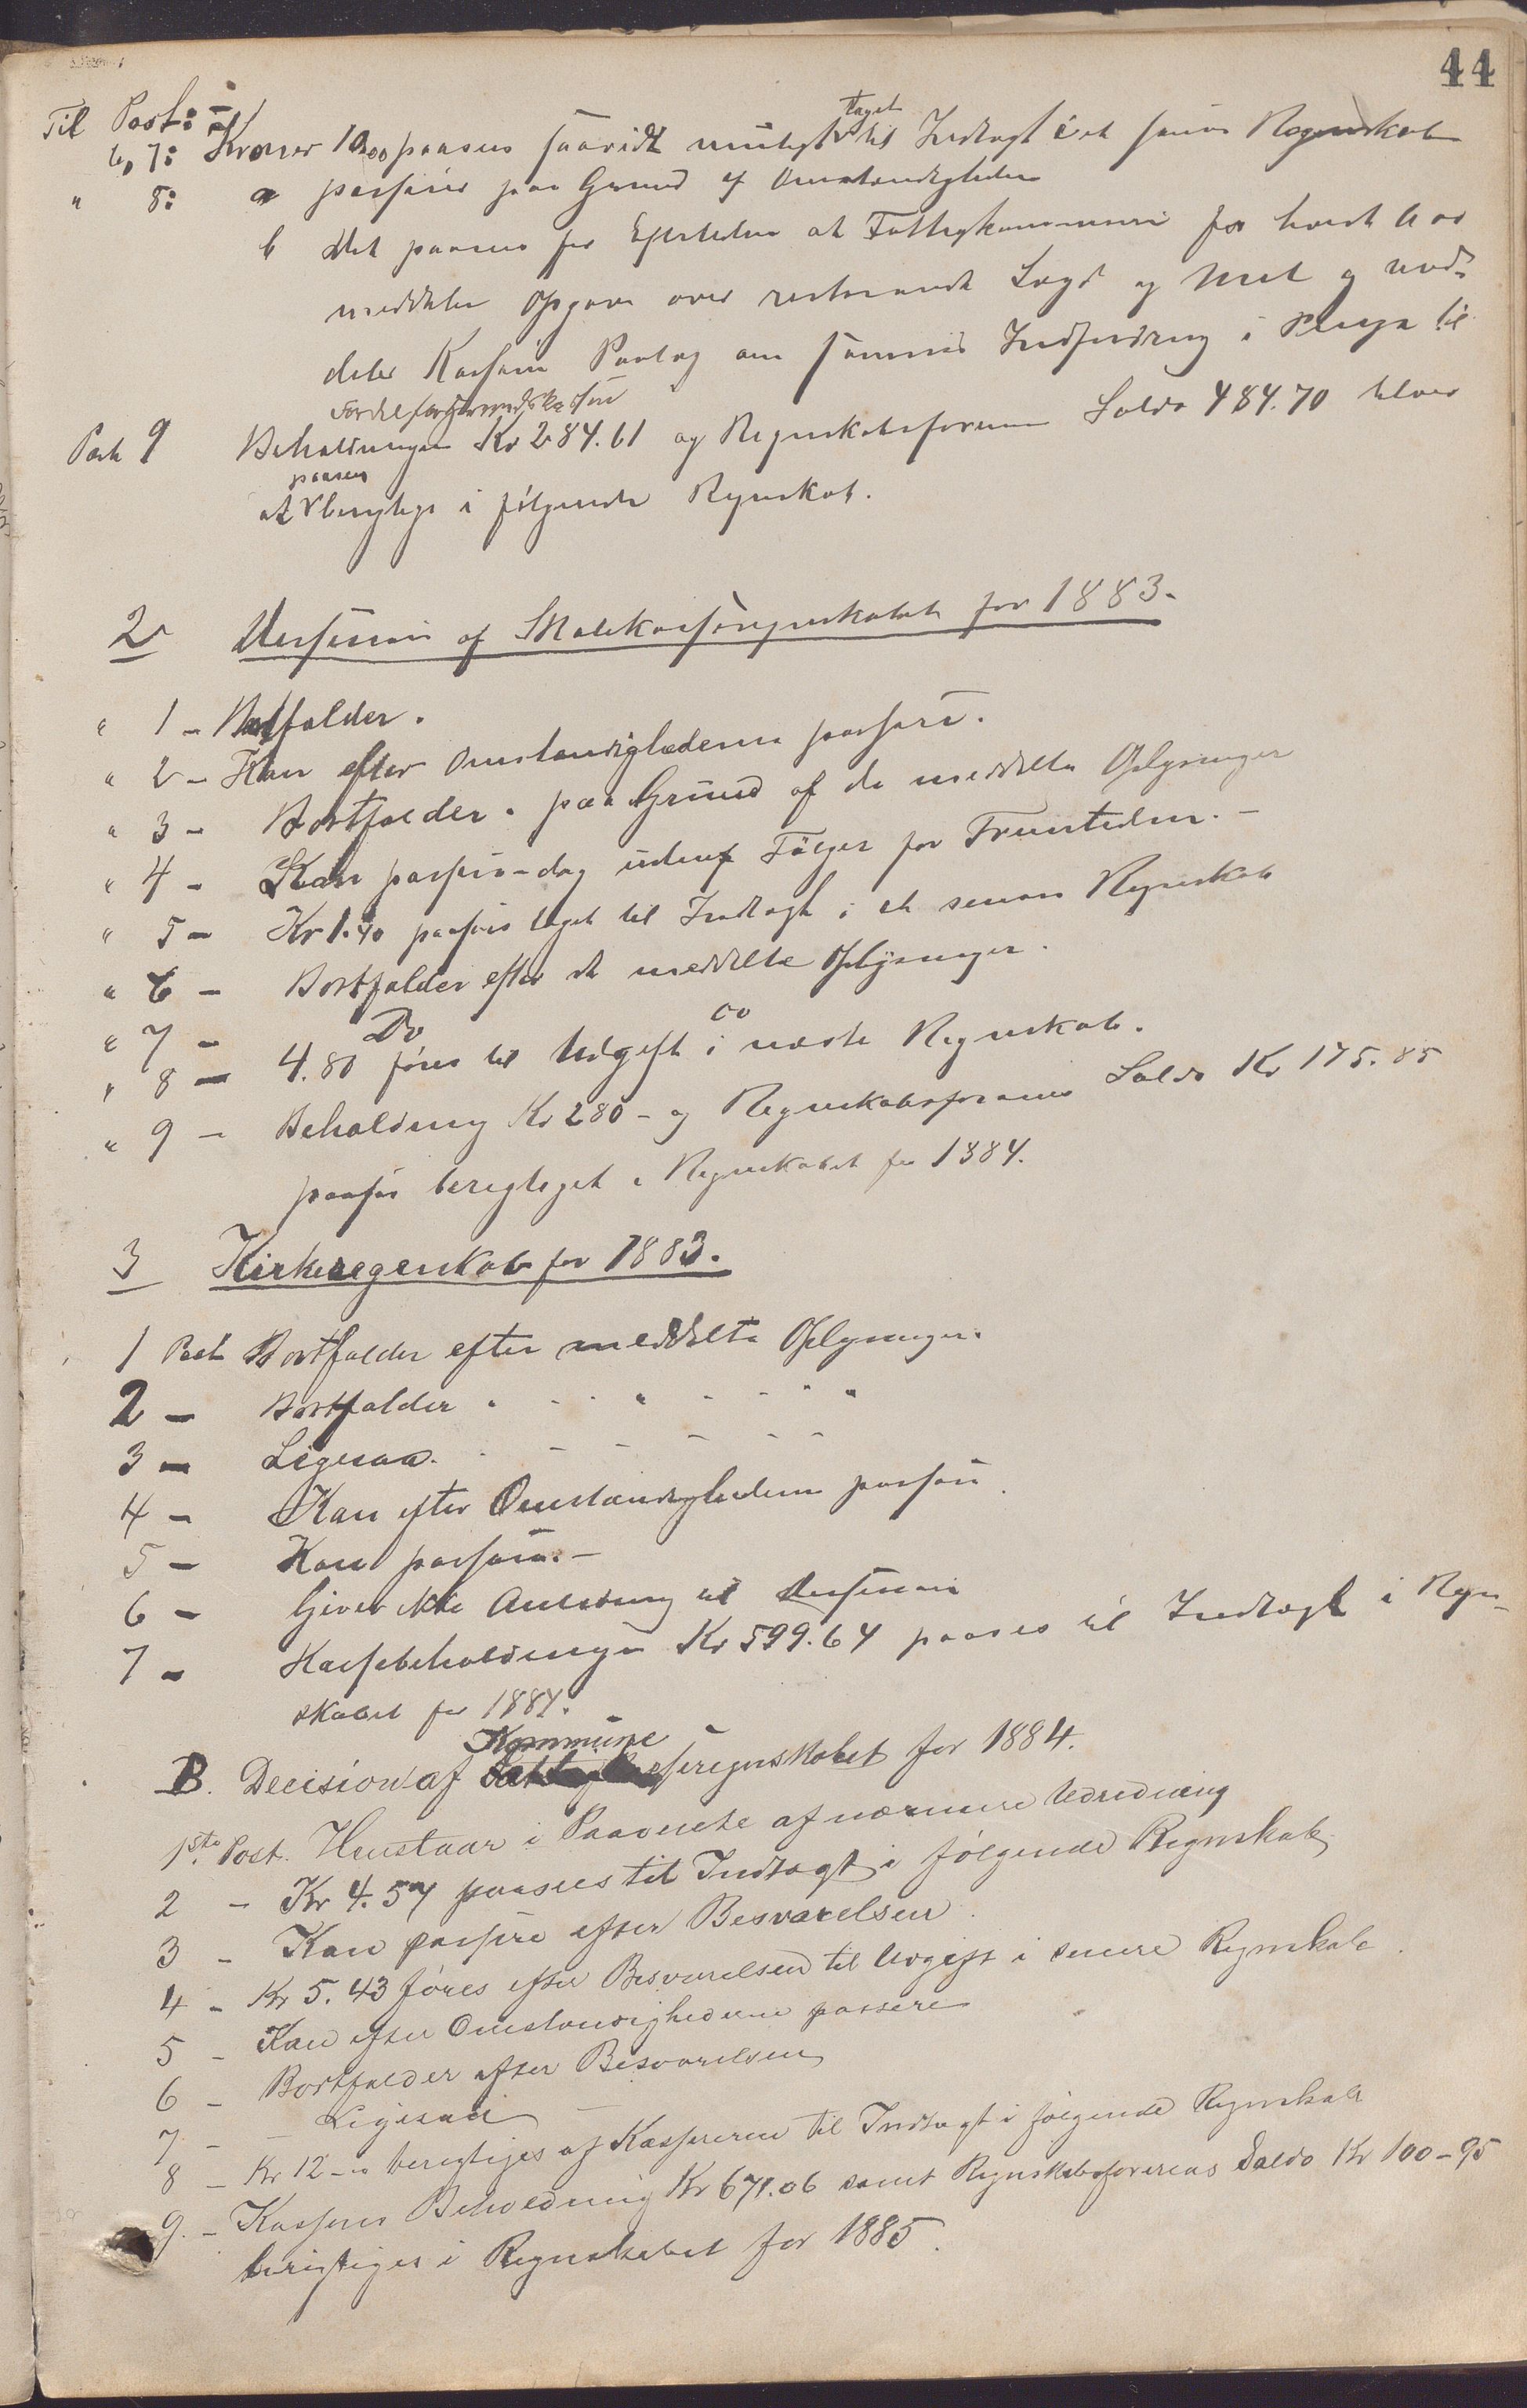 44
Til Post:
" 7: Kroner 10,00 paasees saavidt muligt taget til Indtægt i et senere Regnskab
" 8: a passerer paa Grund af Omstændighederne
b Det paasees for Eftertiden at Fattigkommissionen
meddeler Opgave over resterende Lægd og
deler Kassereren Paalæg om sammes Inddrivning i Penge til
Post 9 Beholdningen Kr 284.61 og Regnskabsførerens Saldo 484.70 bliver
at paasees berigtiget i følgende Regnskab.
2 Decision af Skolekasseregnskabet for 1883.
" 1 - Bortfalder.
" 2 - Kan efter Omstændighederne passere.
" 3 - Bortfalder. paa Grund af de meddelte Oplysninger
" 4 - Kan passere - dog uden Følger for Fremtiden. -
" 5 - Kr 1.40 paasees taget til Indtægt i et senere Regnskab
" 6 - Bortfalder efter de meddelte Oplysninger.
" 7 - Do Do
" 8 - 4.80 føres til Udgift i næste Regnskab.
" 9 - Beholdning Kr 280 - og Regnskabsførerens Saldo Kr 175.85
paasees berigtiget i Regnskabet for 1884.
3 Kirkeregnskab for 1883.
1 Post Bortfalder efter meddelte Oplysninger.
2 - Bortfalder " - - " - - " "
3 - Ligesaa. - - - - - -
4 - Kan efter Omstændighederne passere.
5 - Kan passere. -
6 - Giver ikke Anledning til Decision
7 - Kassebeholdningen Kr 599.64 paasees til Indtægt i Regn-
skabet for 1884.
Kommune
B. Decision af kasseregnskabet for 1884.
1ste Post. Henstaar i Paavente af nærmere Udredning
2 - Kr 4.57 paasees til Indtægt i følgende Regnskab
3 - Kan passere efter Besvarelsen.
4 - Kr 5.43 føres efter Besvarelsen til Udgift i senere Regnskab.
5 - Kan efter Omstændighederne passere
6 - Bortfalder efter Besvarelsen
7 - - Ligesaa -
8 - Kr 12 - " berigtiges af Kassereren til Indtægt i følgende Regnskab
9. - Kassens Beholdning Kr 671.06 samt Regnskabsførerens Saldo Kr 100-95
berigtiges i Regnskabet for 1885.